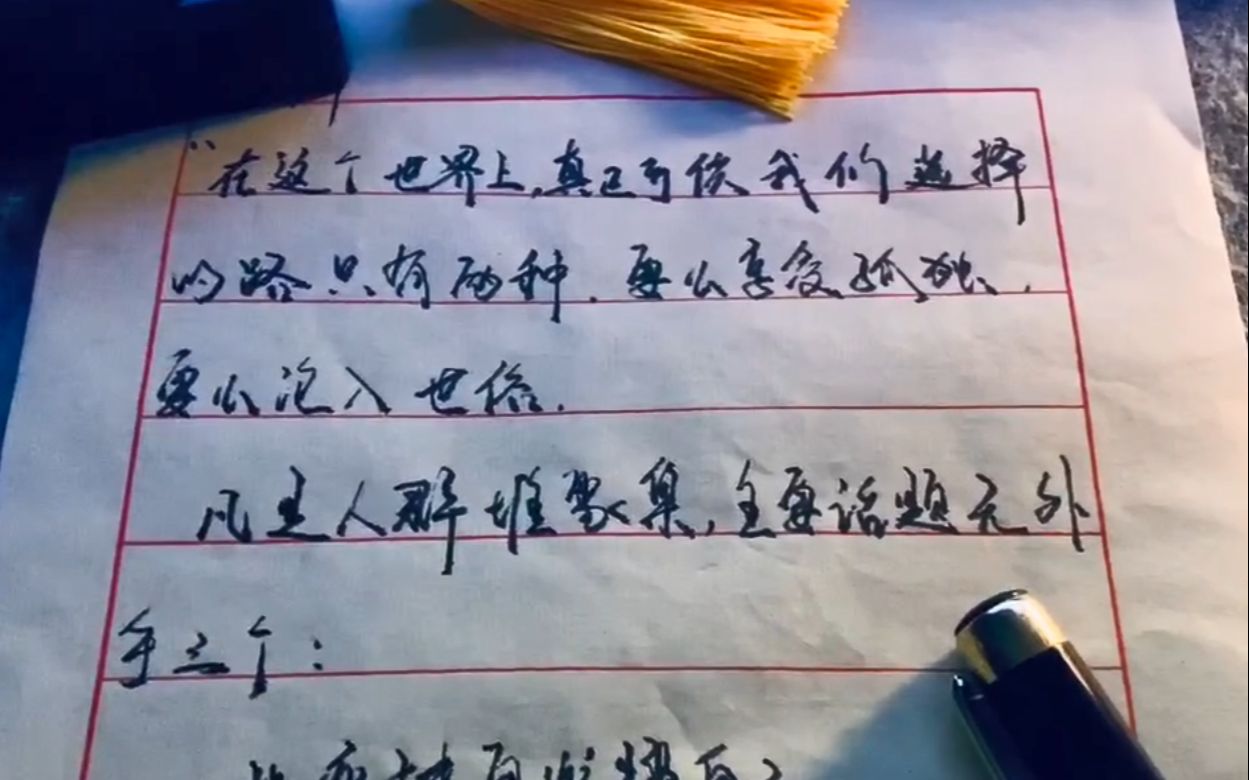 “在这个世界上,真正可供我们选择
的路只有两种.要么享受孤独.
要么沦入世俗.
凡是人群堆聚集,主要话题无外
乎三个: